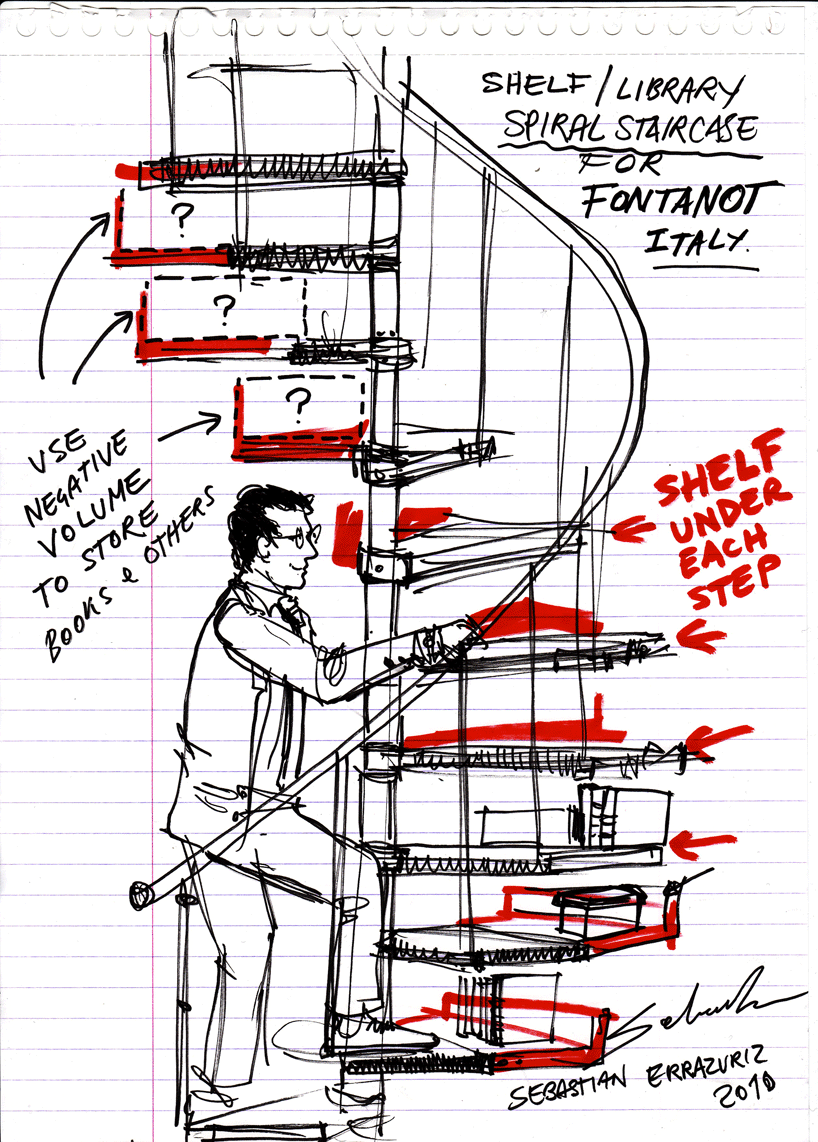 SHELF / LIBRARY
SPIRAL STAIRCASE
FOR
FONTANOT
ITALY.
?
?
?
USE
NEGATIVE
VOLUME
TO STORE
BOOKS & OTHERS
SHELF
UNDER
EACH
STEP
SEBASTIAN ERRAZURIZ
2010